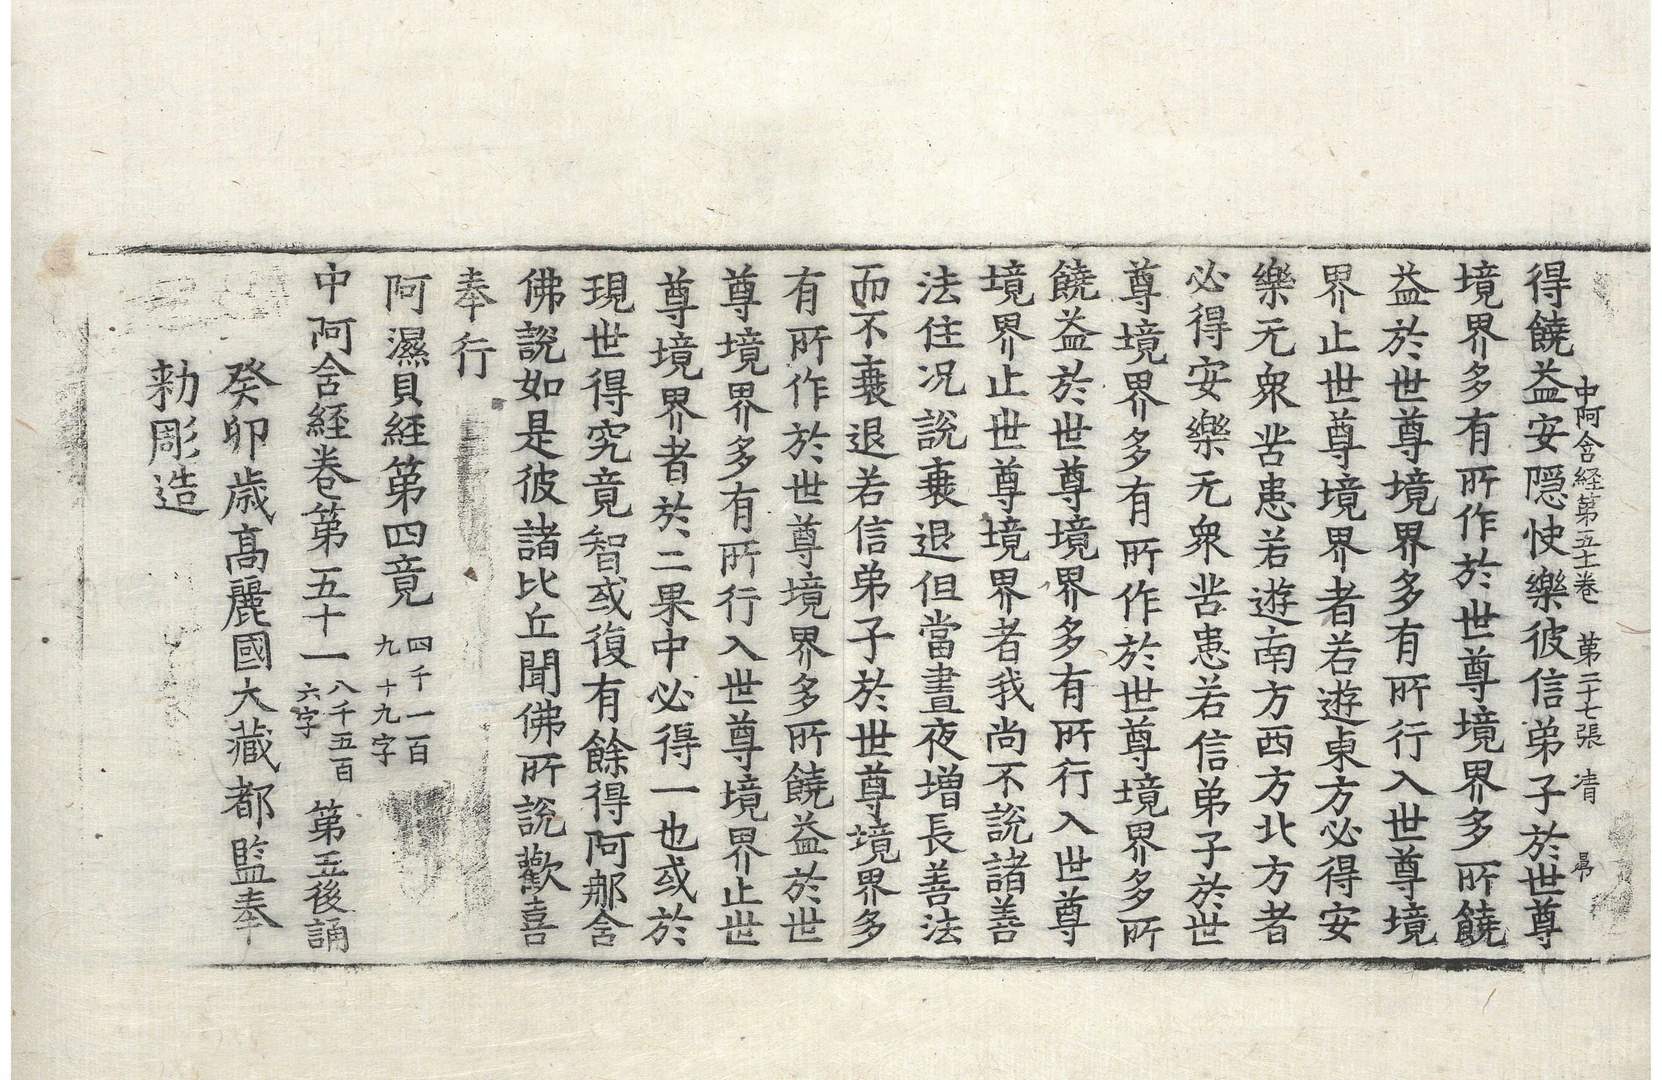 中阿含経第五十一巻　第二十七張　凊
得饒益安隱快樂彼信弟子於世尊
境界多有所作於世尊境界多所饒
益於世尊境界多有所行入世尊境
界止世尊境界者若遊東方必得安
樂无衆苦患若遊南方西方北方者
必得安樂无衆苦患若信弟子於世
尊境界多有所作於世尊境界多所
饒益於世尊境界多有所行入世尊
境界止世尊境界者我尚不說諸善
法住況說衰退但當晝夜增長善法
而不衰退若信弟子於世尊境界多
有所作於世尊境界多所饒益於世
尊境界多有所行入世尊境界止世
尊境界者於二果中必得一也或於
現世得究竟智或復有餘得阿那含
佛說如是彼諸比丘聞佛所說歡喜
奉行
阿濕貝経第四竟　四千一百九十九字
中阿含経巻第五十一　八千五百六字　第五後誦
癸卯歳髙麗國大藏都監奉
勅彫造